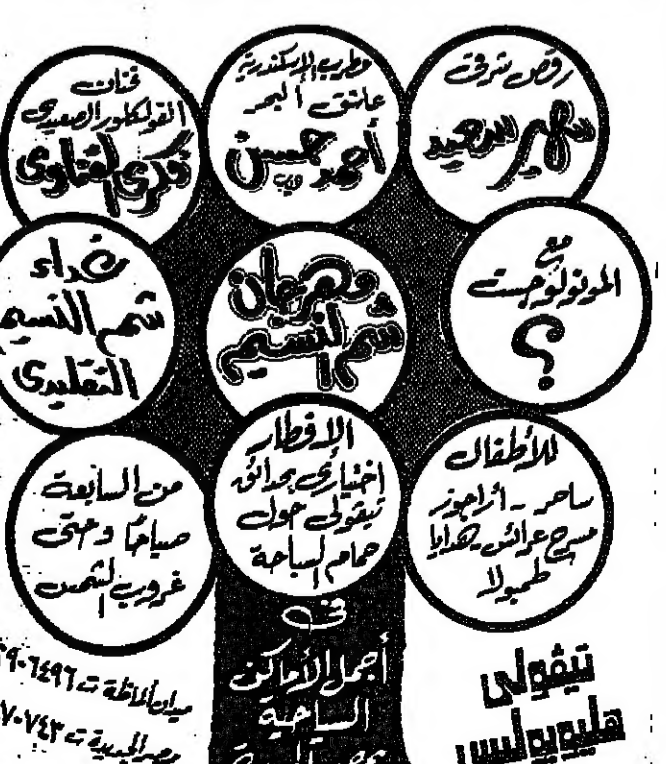 رقص شرقى
سهير سعيد
مطرب الإسكندرية
عاشق البحر
أحمد حسن
فنان
الفولكلور الصعيدى
فكرى القناوى
مع
المونولوجست
؟
مهرجان
شم النسيم
غداء
شم النسيم
التقليدى
للأطفال
ساحر - أراجوز
مسرح عرائس - هدايا
طمبولا
الافطار
اختيارى بحدائق
تيفولى حول
حمام السباحة
من السابعة
صباحًا وحتى
غروب الشمس
فى
أجمل الأماكن
السياحية
تيفولى
هليوبوليس
ميدان ألماظة ت
مصر الجديدة ت